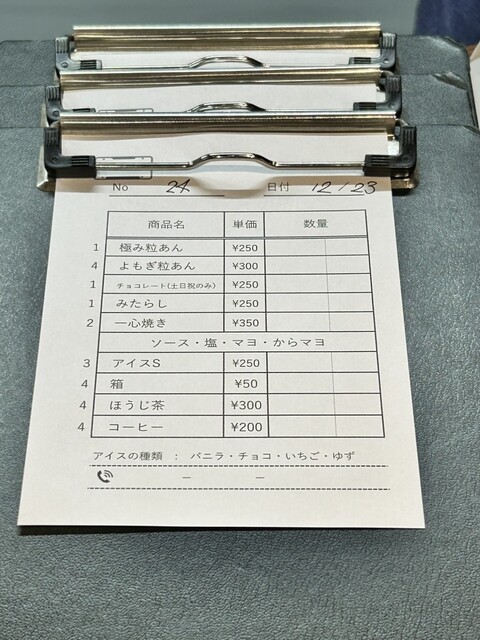 No 24 日付 12/23
商品名 単価 数量
1 極み粒あん ¥250
4 よもぎ粒あん ¥300
1 チョコレート(土日祝のみ) ¥250
1 みたらし ¥250
2 一心焼き ¥350
ソース・塩・マヨ・からマヨ
3 アイスS ¥250
4 箱 ¥50
4 ほうじ茶 ¥300
4 コーヒー ¥200
アイスの種類 : バニラ・チョコ・いちご・ゆず
− −